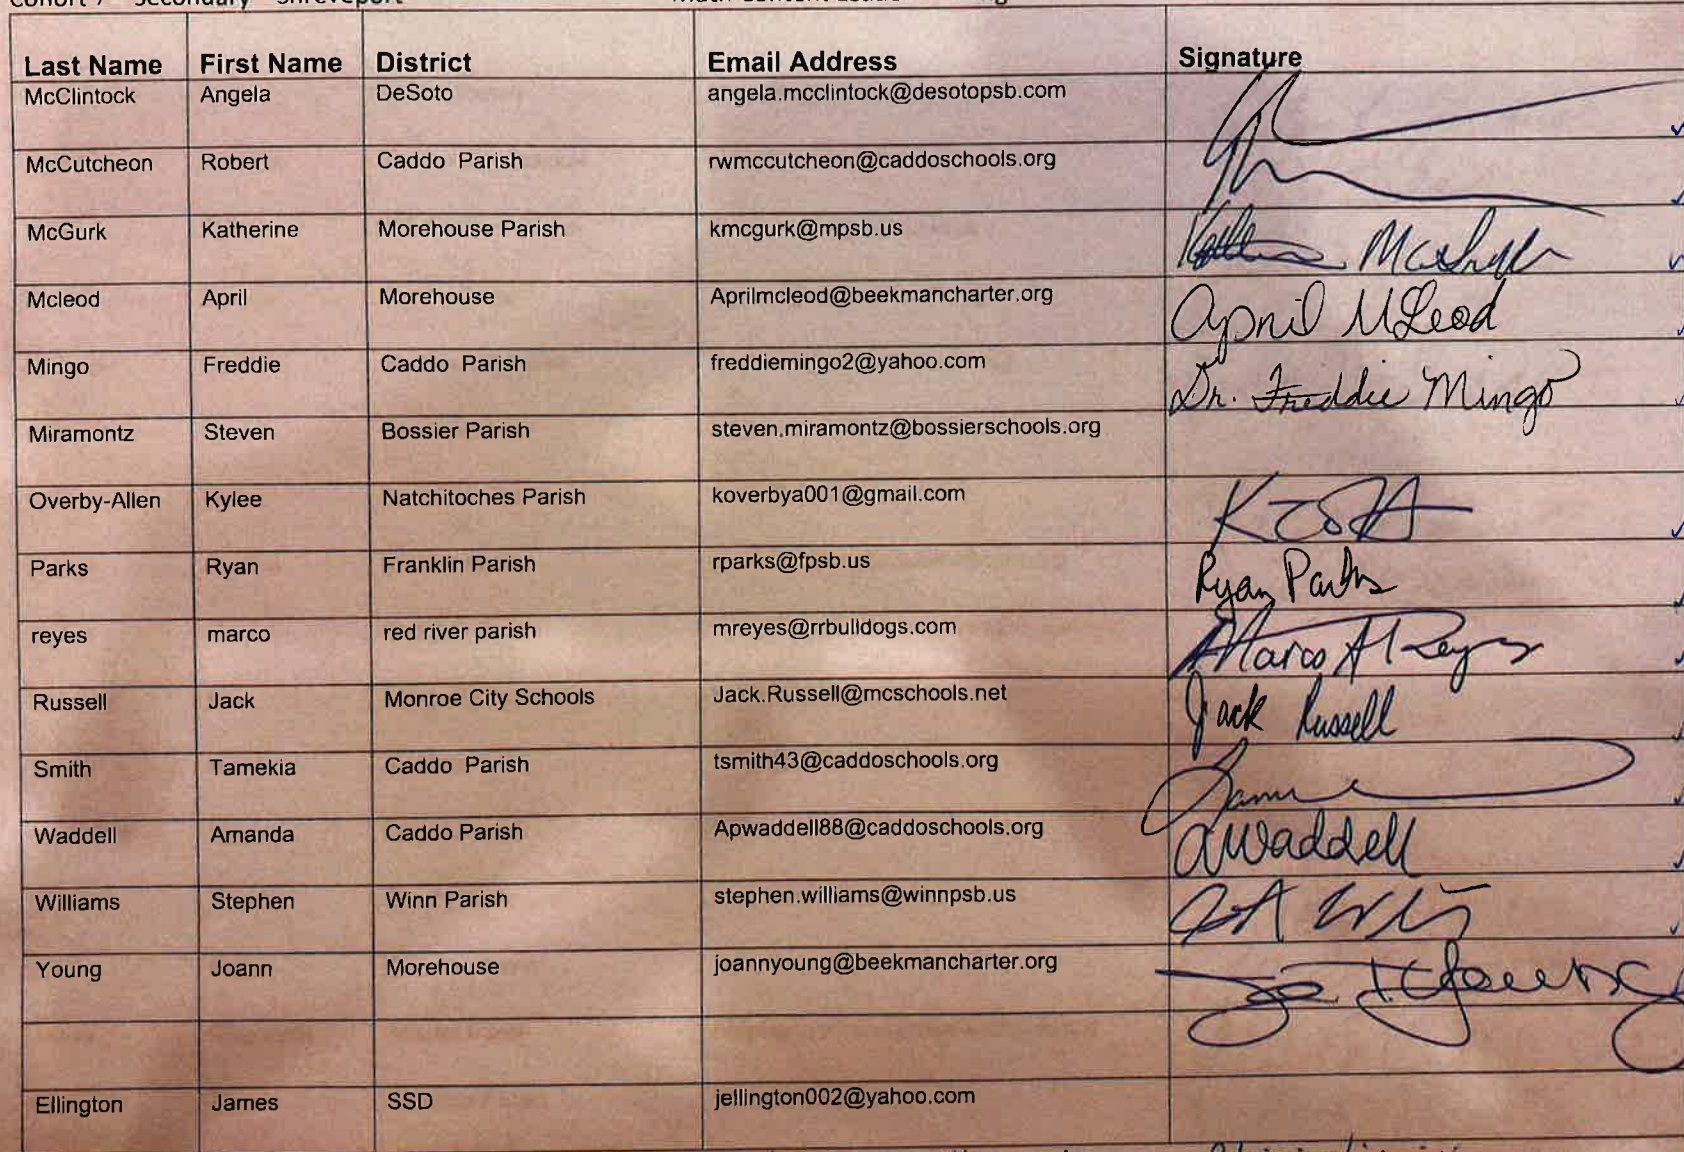 Last Name First Name District Email Address Signature
McClintock Angela DeSoto angela.mcclintock@desotopsb.com
McCutcheon Robert Caddo Parish rwmccutcheon@caddoschools.org
McGurk Katherine Morehouse Parish kmcgurk@mpsb.us
Mcleod April Morehouse Aprilmcleod@beekmancharter.org April McLeod
Mingo Freddie Caddo Parish freddiemingo2@yahoo.com Dr. Freddie Mingo
Miramontz Steven Bossier Parish steven.miramontz@bossierschools.org
Overby-Allen Kylee Natchitoches Parish koverbya001@gmail.com
Parks Ryan Franklin Parish rparks@fpsb.us Ryan Parks
reyes marco red river parish mreyes@rrbulldogs.com Marco A Reyes
Russell Jack Monroe City Schools Jack.Russell@mcschools.net Jack Russell
Smith Tamekia Caddo Parish tsmith43@caddoschools.org
Waddell Amanda Caddo Parish Apwaddell88@caddoschools.org AWaddell
Williams Stephen Winn Parish stephen.williams@winnpsb.us
Young Joann Morehouse joannyoung@beekmancharter.org
Ellington James SSD jellington002@yahoo.com